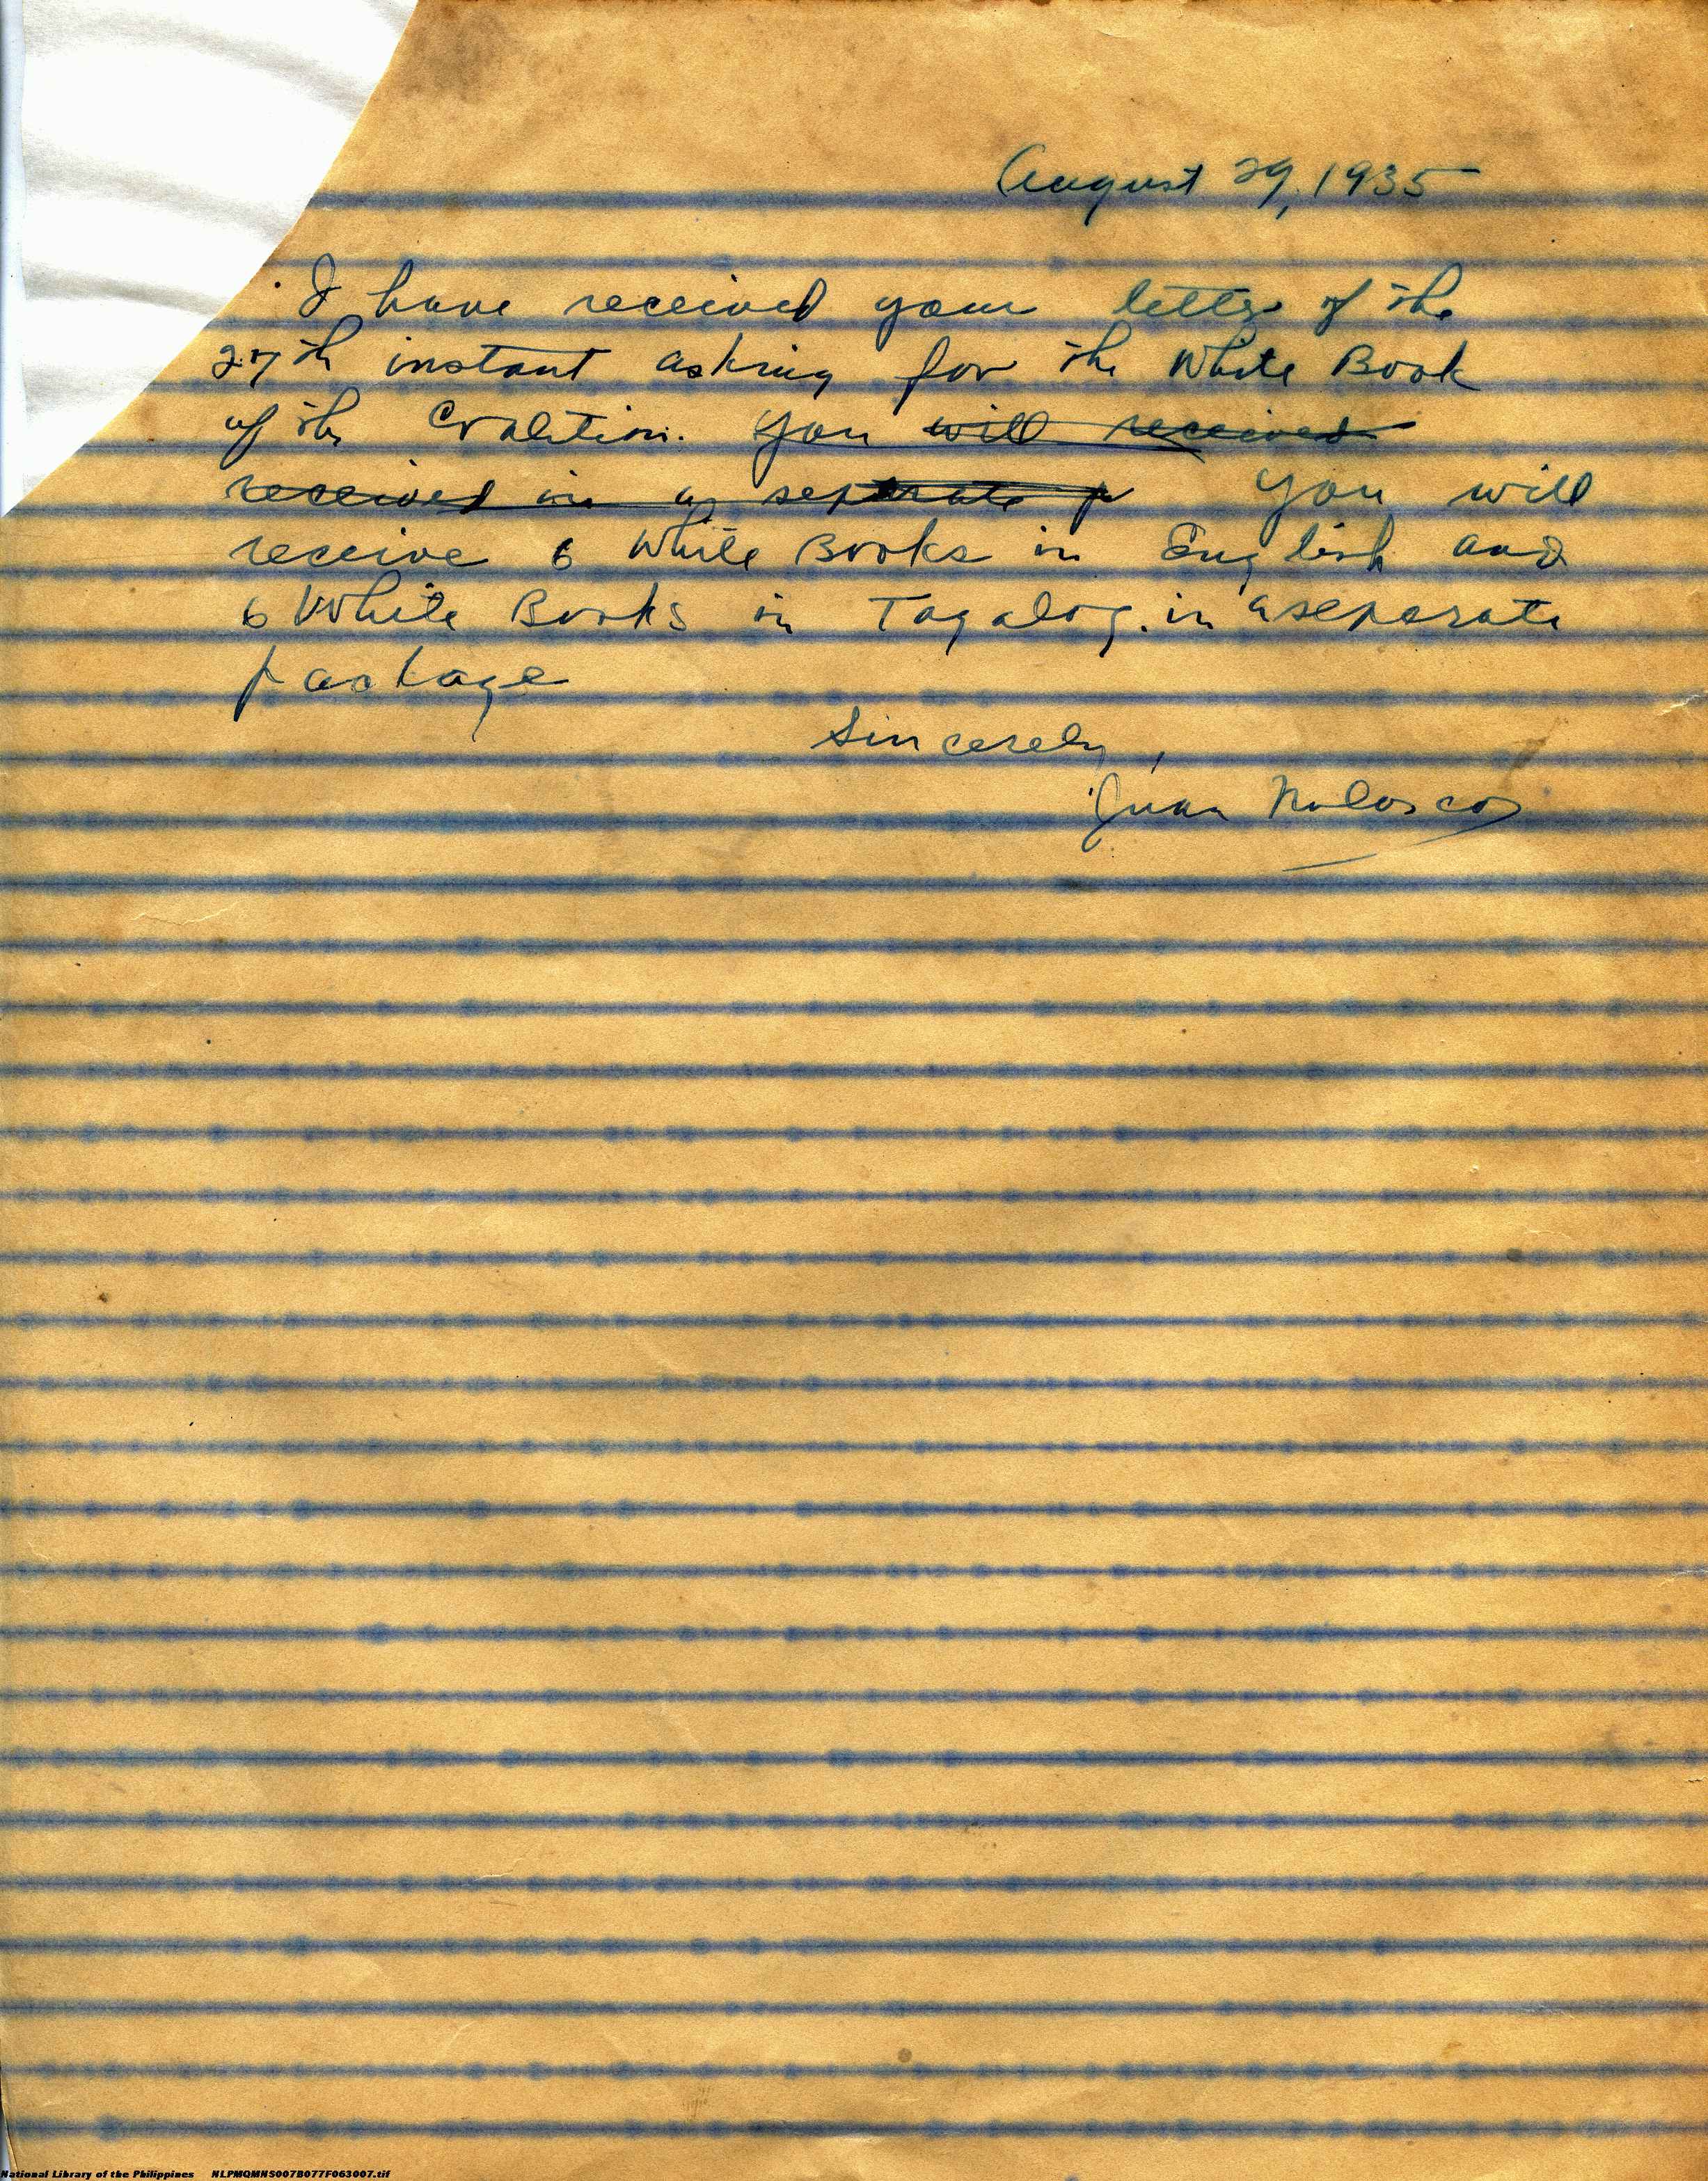 August 29, 1935
I have received your letter of the
27th instant asking for the White Book
of the Coalition. You will received
received in a separate p You will
receive 6 White Books in English and
6 White Books in Tagalog. in a separate
package
Sincerely,
Juan Nolasco
National Library of the Philippines NLPMQMNS007B077F063007.tif